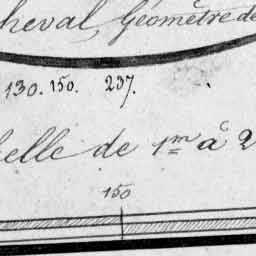 heval Géomètre de
130. 150. 237.
elle de 1m à 2
150